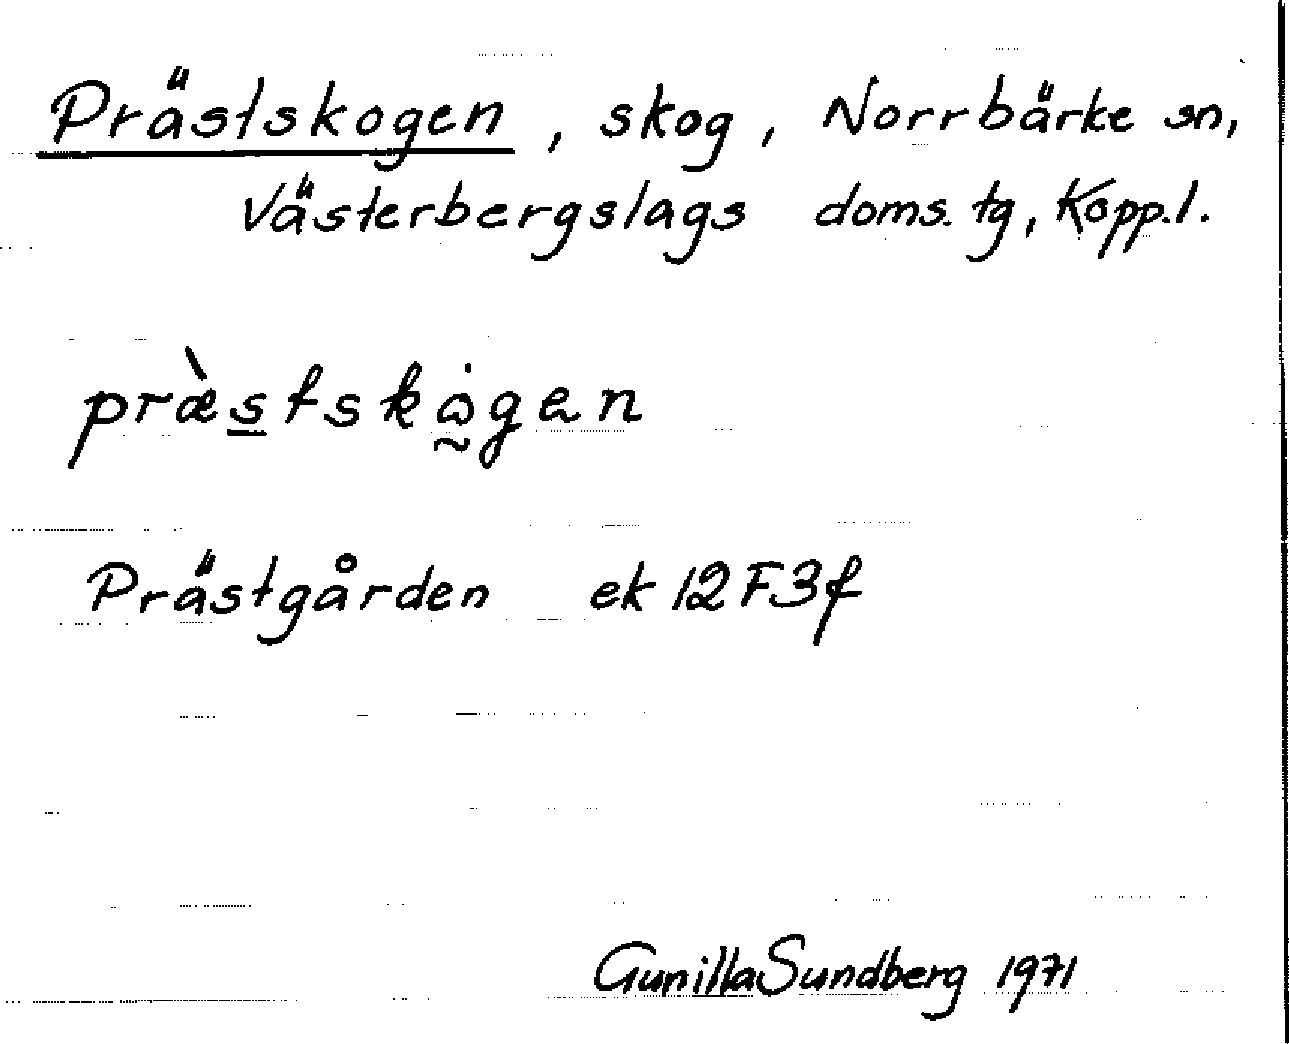 Prästskogen, skog, Norrbärke sn,
Västerbergslags doms. tg, Kopp.l.
præ̀s̲tskȯ̰gen
Prästgården ek 12F3f
Gunilla Sundberg 1971